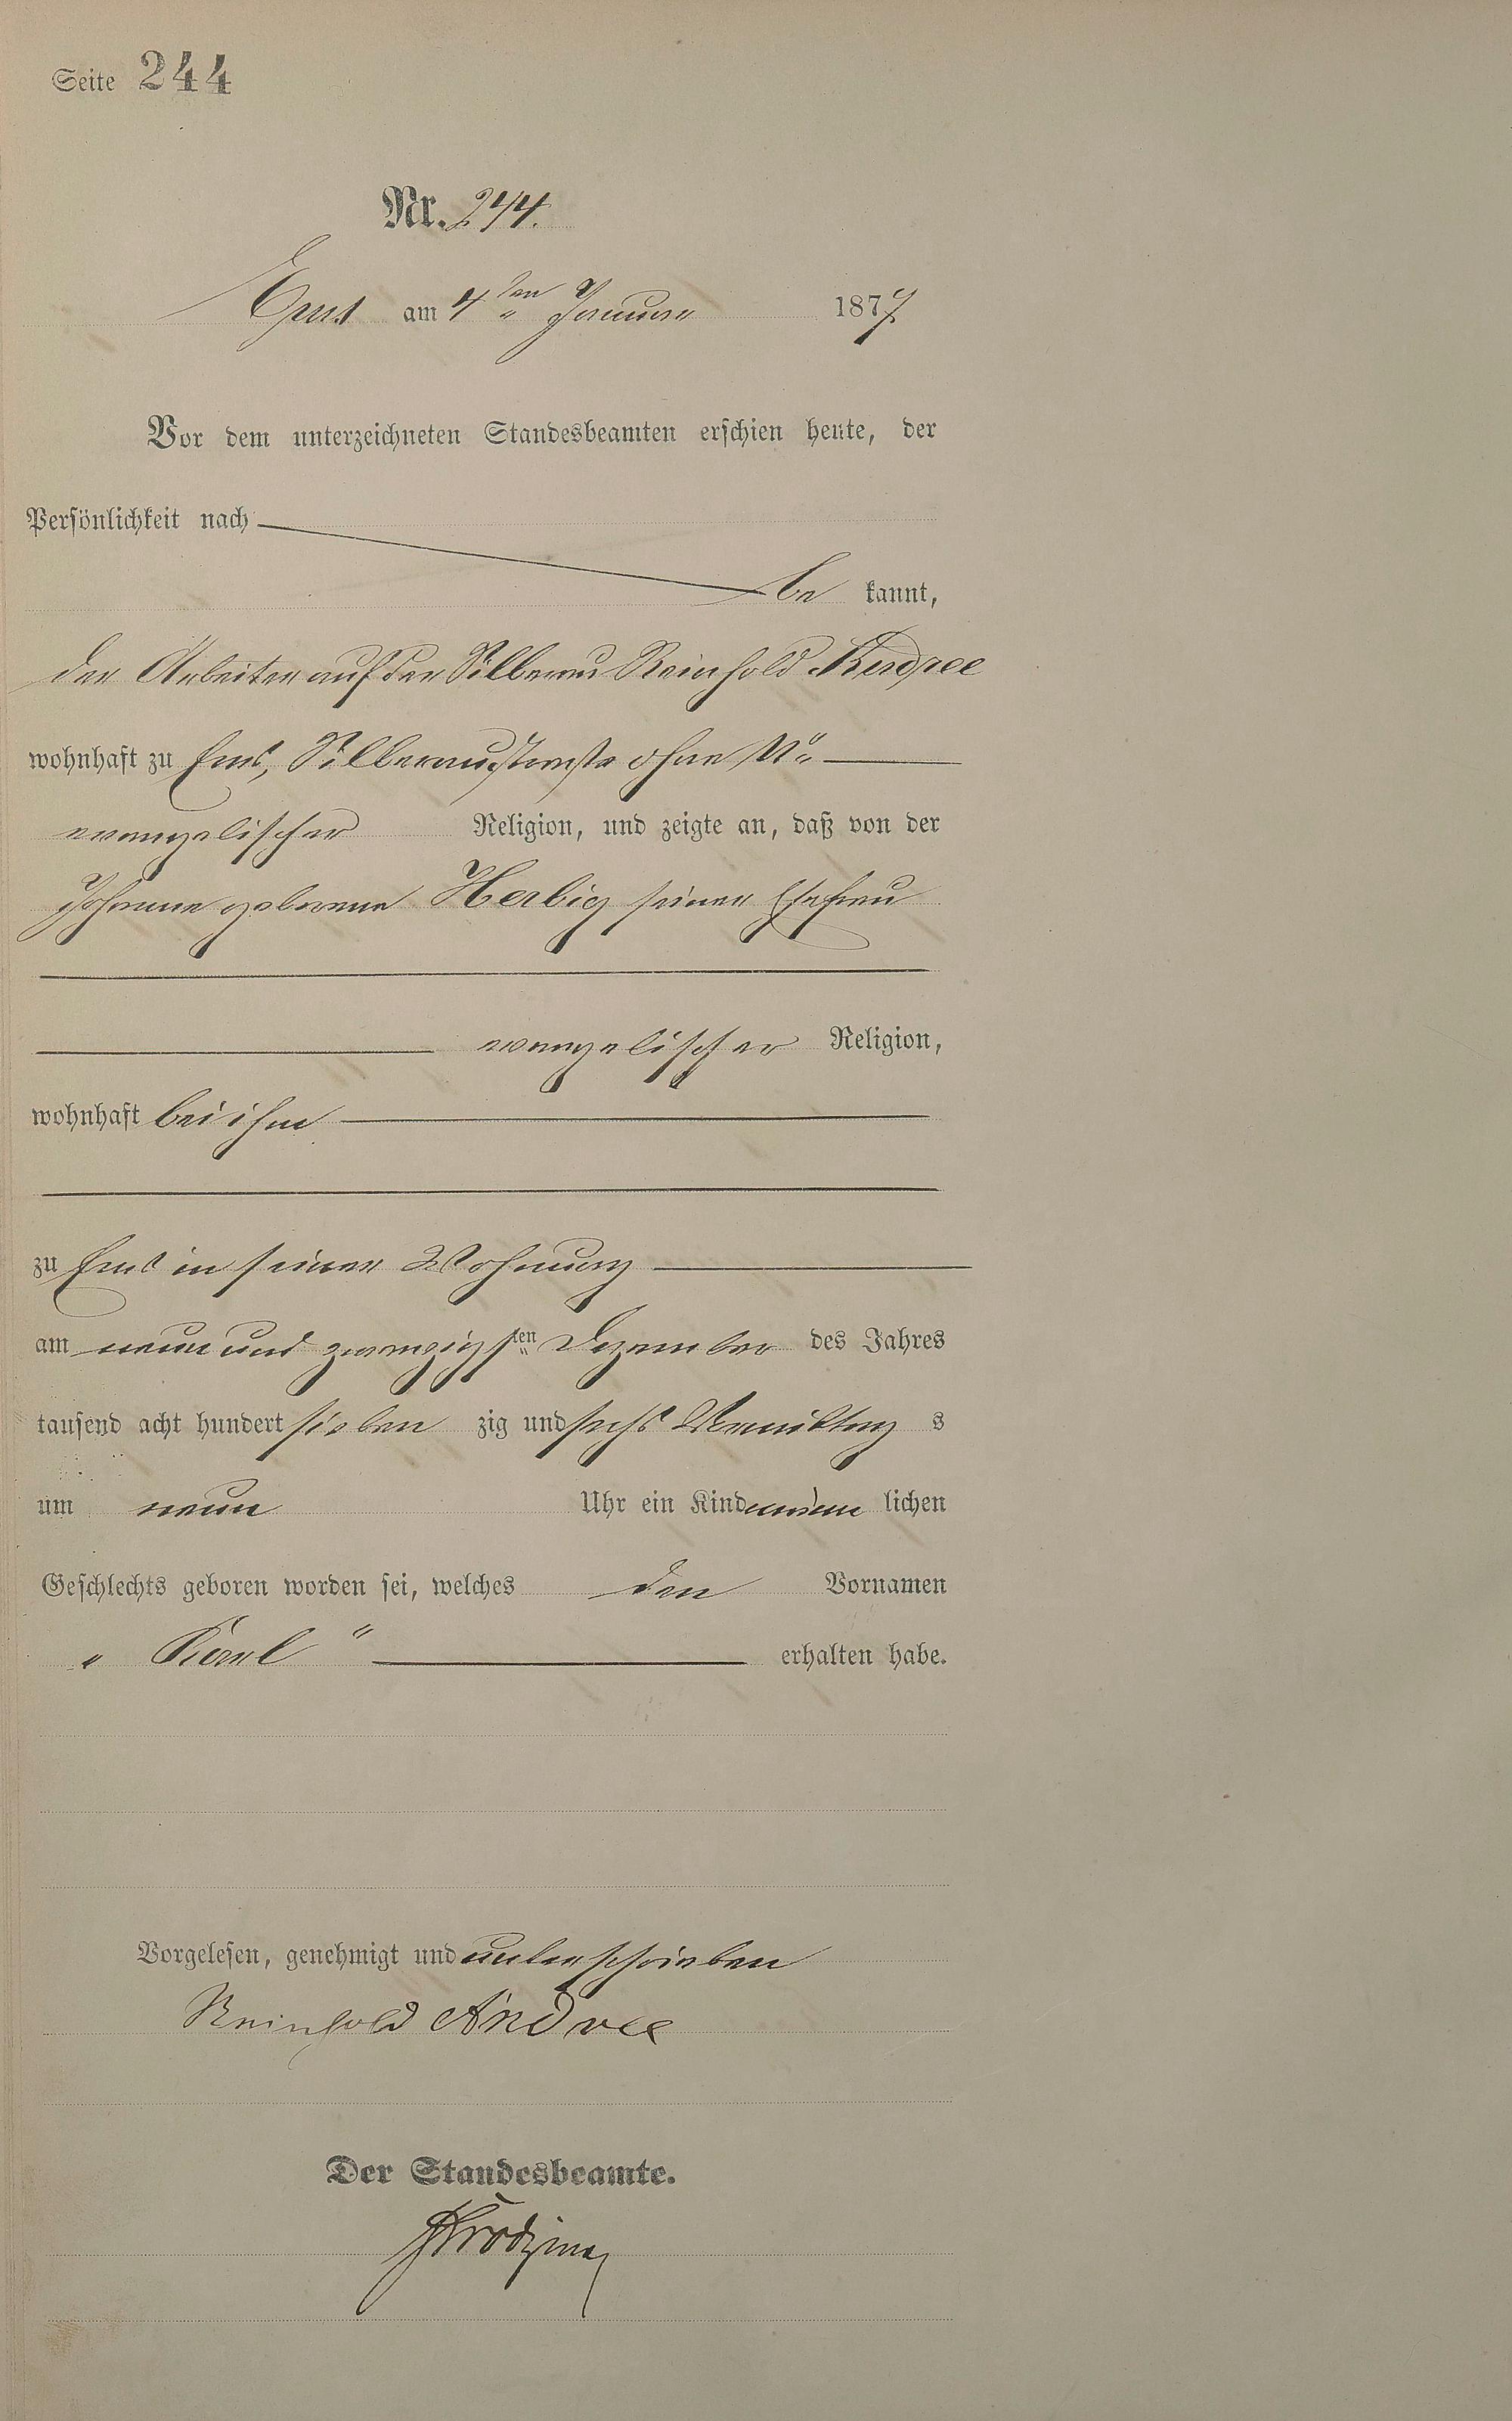 Seite 244
Nr. 244.
Ems am 4ten Januar 1877
Vor dem unterzeichneten Standesbeamten erschien heute, der
Persönlichkeit nach
be kannt,
der Arbeiter auf der Silberau Reinhold Andree
wohnhaft zu Ems, Silberaustraße ohne No
evangelischer Religion, und zeigte an, daß von der
Johanna geborene Herbig seiner Ehefrau
evangelischer Religion,
wohnhaft bei ihm
zu Ems in seiner Wohnung
am neun und zwanzigsten Dezember des Jahres
tausend acht hundert sieben zig und sechs Vormittag s
um neun Uhr ein Kind männ lichen
Geschlechts geboren worden sei, welches den Vornamen
"Karl" erhalten habe.
Vorgelesen, genehmigt und unterschrieben
Reinhold Andree
Der Standesbeamte.